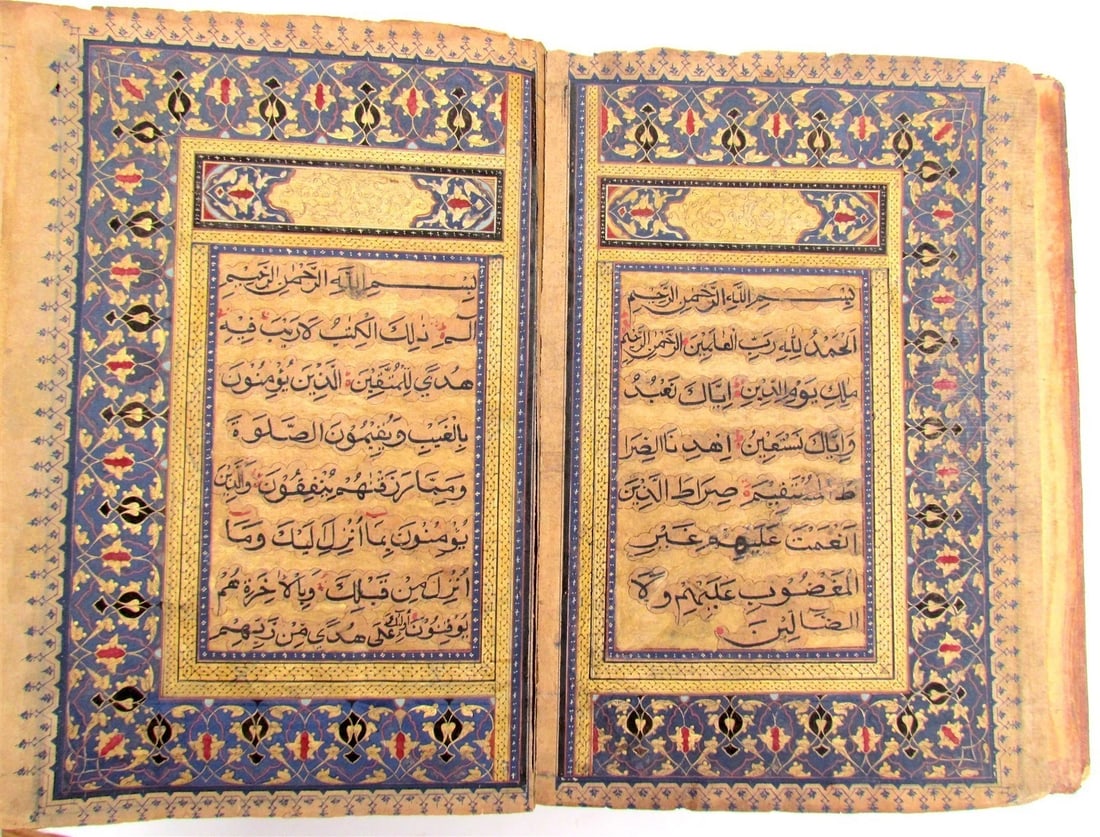 بِسْمِ اللَّهِ الرَّحْمٰنِ الرَّحِيمِ
اَلْحَمْدُ لِلّٰهِ رَبِّ الْعَالَمِينَ الرَّحْمٰنِ الرَّحِيمِ
مٰلِكِ يَوْمِ الدِّينِ اِيَّاكَ نَعْبُدُ
وَاِيَّاكَ نَسْتَعِينُ اِهْدِنَا الصِّرَا
طَ الْمُسْتَقِيمَ صِرَاطَ الَّذِينَ
اَنْعَمْتَ عَلَيْهِمْ غَيْرِ
الْمَغْضُوبِ عَلَيْهِمْ وَلَا
الضَّالِّينَ
بِسْمِ اللَّهِ الرَّحْمٰنِ الرَّحِيمِ
الٓمٓ ذٰلِكَ الْكِتٰبُ لَا رَيْبَ فِيهِ
هُدًى لِلْمُتَّقِينَ الَّذِينَ يُؤْمِنُونَ
بِالْغَيْبِ وَيُقِيمُونَ الصَّلٰوةَ
وَمِمَّا رَزَقْنٰهُمْ يُنْفِقُونَ وَالَّذِينَ
يُؤْمِنُونَ بِمَٓا اُنْزِلَ اِلَيْكَ وَمَٓا
اُنْزِلَ مِنْ قَبْلِكَ وَبِالْاٰخِرَةِ هُمْ
يُوقِنُونَ اُولٰٓئِكَ عَلٰى هُدًى مِنْ رَبِّهِمْ